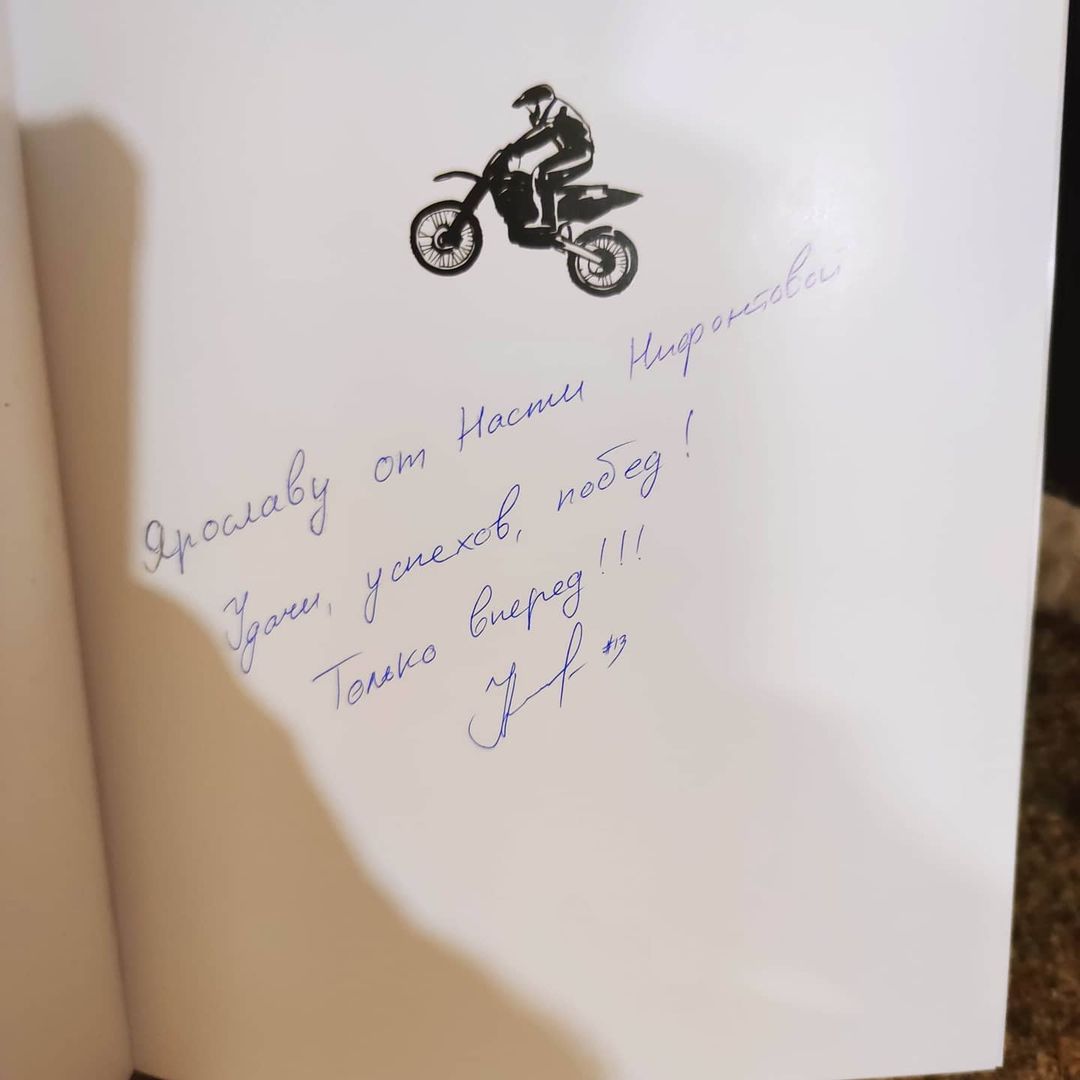 Ярославу от Насти Нифонтовой
Удачи, успехов, побед!
Только вперед!!!
#13